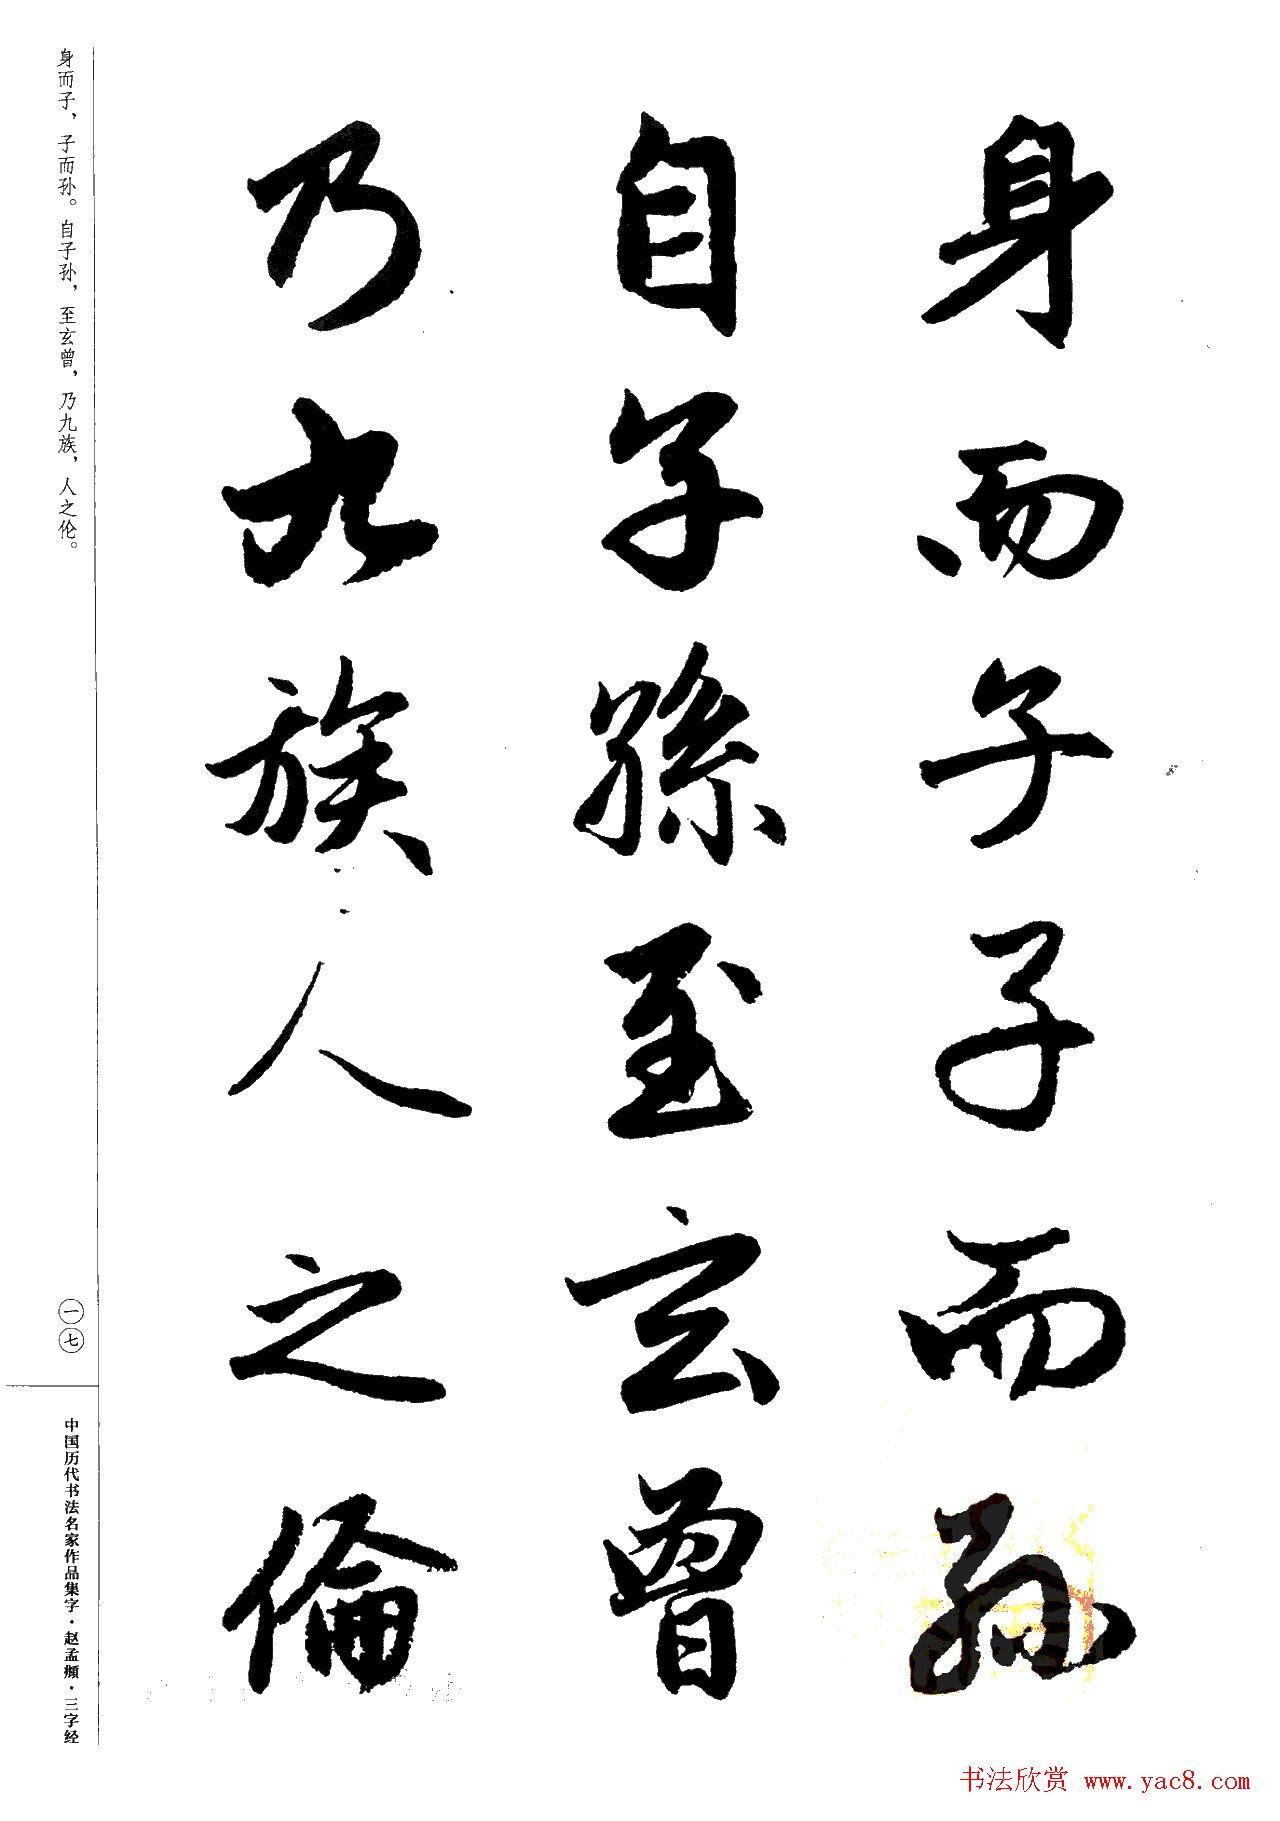 身而子子而孫
自子孫至玄曾
乃九族人之倫
身而子，子而孙。自子孙，至玄曾，乃九族，人之伦。
一七
中国历代书法名家作品集字·赵孟頫·三字经
书法欣赏 www.yac8.com